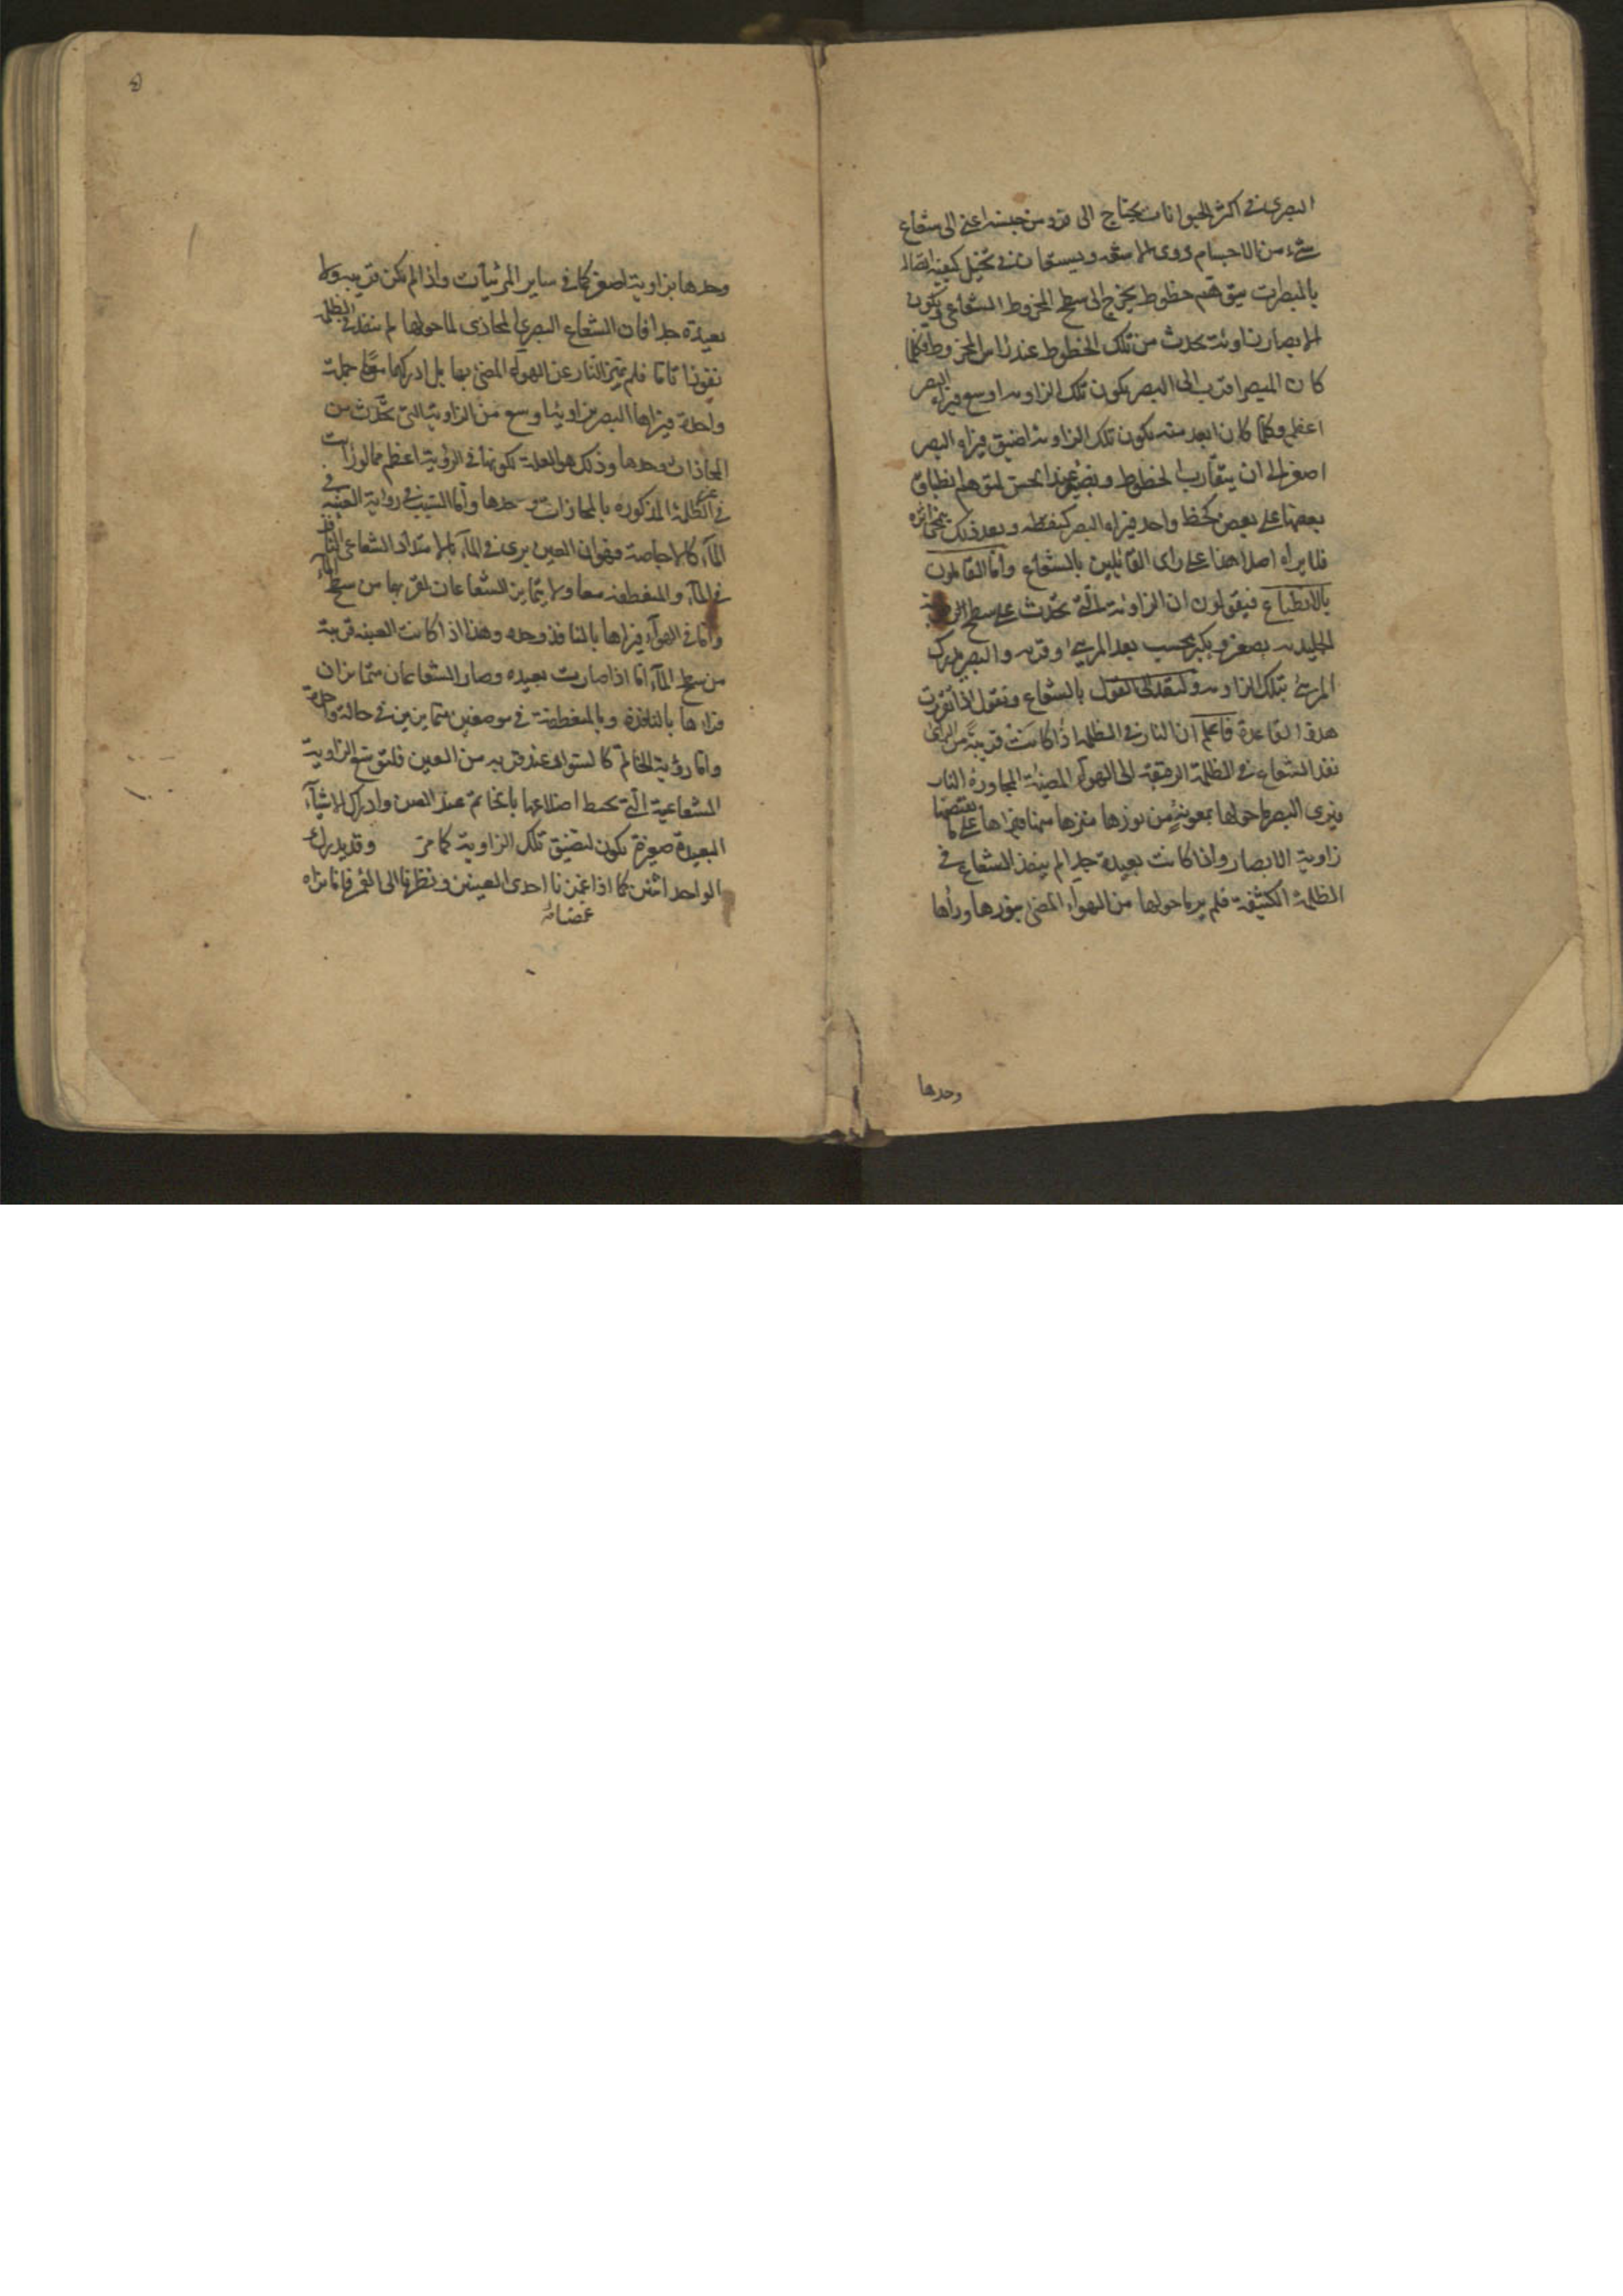 البصرى فى اكثر الحيوانات يحتاج الى قوة من جنسه اعنى الى شعاع
شىء من الاجسام ذوى الاشعه ويستعان فى تخيل كيفية اتصاله
بالمبصرات بتوهم خطوط يخرج الى سطح المخروط الشعاعى ويكون
الابصار بزاوية تحدث من تلك الخطوط عند راس المخروط فكلما
كان المبصر اقرب الى البصر يكون تلك الزاويه اوسع فيراه البصر
اعظم وكلما كان ابعد منه يكون تلك الزاوية اضيق فيراه البصر
اصغر الى ان يتقارب الخطوط ويصير عند الحس لتوهم انطباق
بعضها على بعض كخط واحد فيراه البصر كنقطه وبعد ذلك ينمحى اثره
فلا يراه اصلا هذا على راى القائلين بالشعاع واما القائلون
بالانطباع فيقولون ان الزاوية التى تحدث على سطح الرطوبة
الجليديه يصغر ويكبر بحسب بعد المرئى وقربه والبصر يدرك
المرئى بتلك الزاويه ولنعد الى القول بالشعاع ونقول اذا تقررت
هذه القاعدة فاعلم ان النار فى الظلمة اذا كانت قريبة من الرائى
نفذ الشعاع فى الظلمة الرقيقة الى الهواء المضيئة المجاورة النار
فيرى البصر ما حولها بمعونة من نورها ميزها منها فيراها على ما يقتضيها
زاوية الابصار واذا كانت بعيدة جدا لم ينفذ الشعاع فى
الظلمة الكثيفة فلم ير ما حولها من الهواء المضئ بنورها وراها
وحدها
وحدها بزاوية اصغر كما فى ساير المرئيات واذا لم يكن قريبه ولا
بعيدة جدا فان الشعاع البصرى المحاذى لما حولها لم ينفذ فى الظلمة
نفوذا تاما فلم يميز النار عن الهواء المضئ بها بل ادركهما معا جملة
واحدة فيراها البصر بزاوية اوسع من الزاوية التى تحدث من
المحاذات وحدها وذلك هو العلة لكونها فى الرؤية اعظم مما لو رأيت
فى الظلمة المذكوره بالمحاذات وحدها واما السبب فى رواية العنبه فى
الماء كالاجاصة فهو ان العين يرى فى الماء بالامتداد الشعاعى النافذ
فى الماء والمنعطفه معا ولا يتمايز الشعاعان لقربها من سطح الماء
واما فى الهواء فيراها بالنافذ وحده وهذا اذا كانت العنبه قريبة
من سطح الماء اما اذا صارت بعيده وصار الشعاعان متمايزان
فيراها بالنافذة وبالمنعطفة فى موضعين متمايزين فى حالة واحدة
واما رؤية الخاتم كالسوار عند قربه من العين فلتوسع الزاوية
الشعاعية التى يحيط اضلاعها بالخاتم عند العين وادراك الاشياء
البعيدة صغيرة يكون لتضيق تلك الزاوية كما مر وقد يدرك
الواحد اثنين كما اذا غمزنا احدى العينين ونظرنا الى القمر فانا نراه